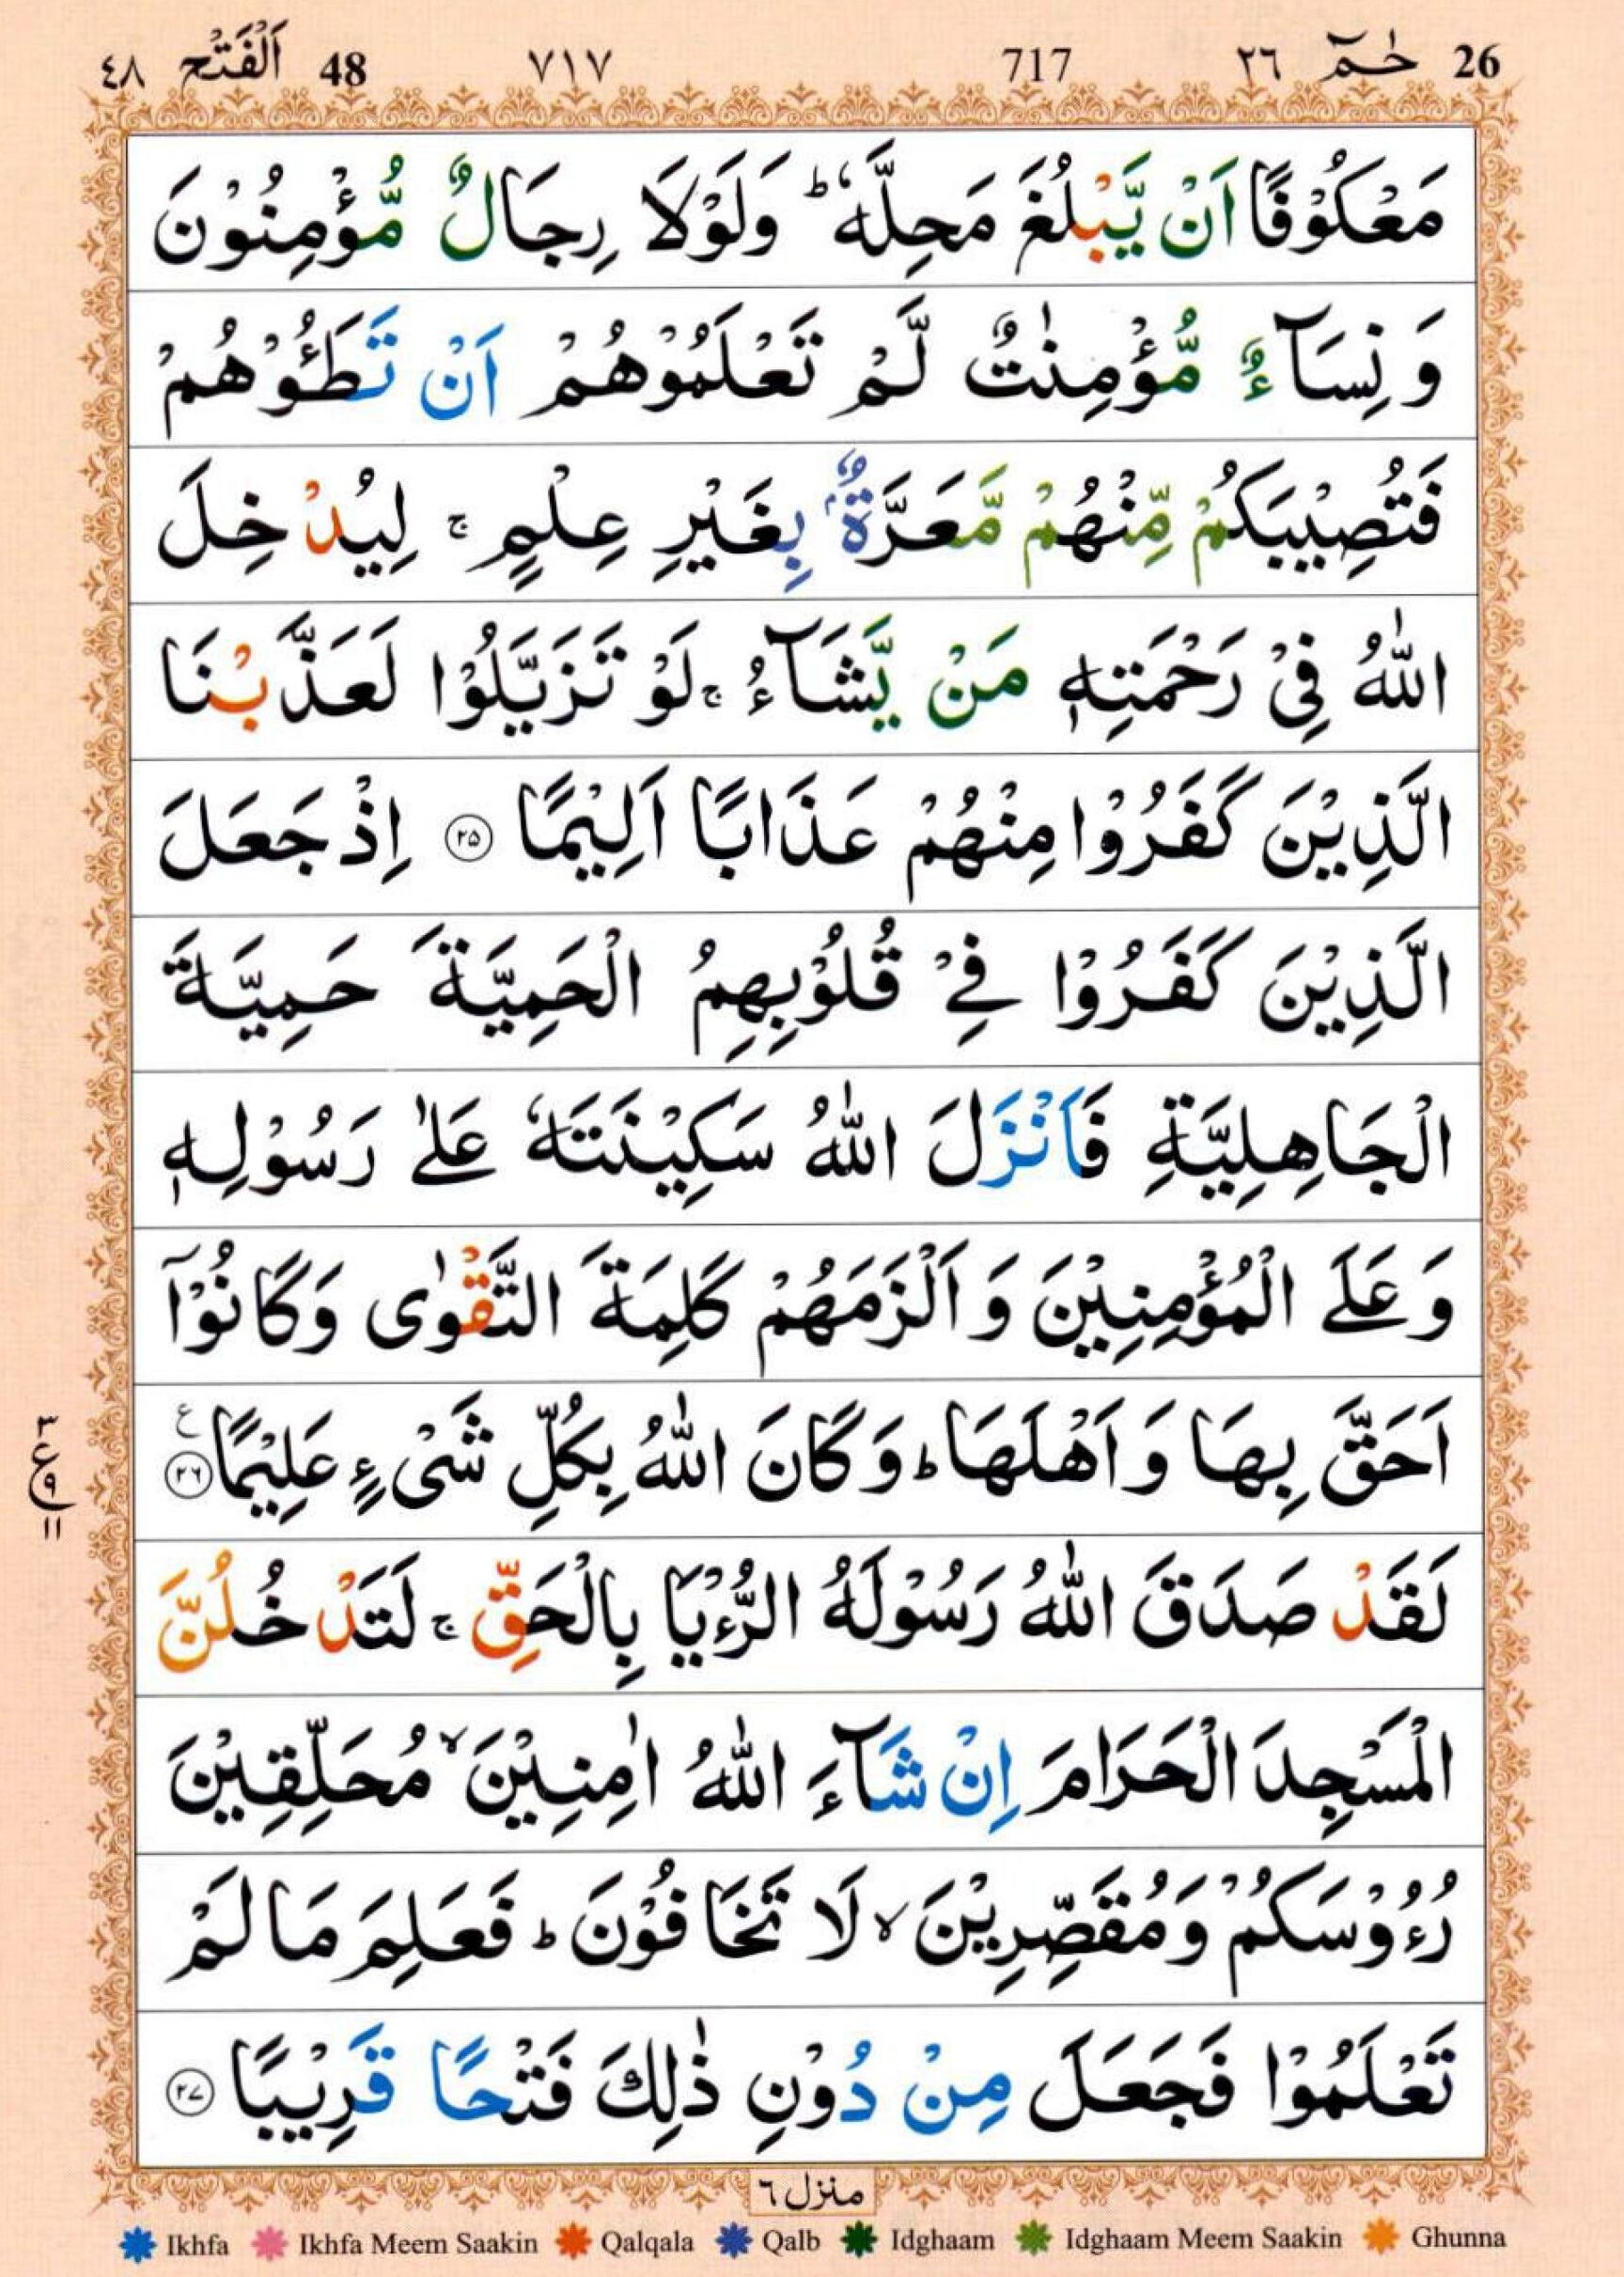 26 حٰمٓ ٢٦ 717 ٧١٧ 48 اَلْفَتْح ٤٨
مَعْكُوْفًا اَنْ يَّبْلُغَ مَحِلَّهٗ ؕ وَلَوْلَا رِجَالٌ مُّؤْمِنُوْنَ
وَ نِسَآءٌ مُّؤْمِنٰتٌ لَّمْ تَعْلَمُوْهُمْ اَنْ تَطَـُٔوْهُمْ
فَتُصِيْبَكُمْ مِّنْهُمْ مَّعَرَّةٌۢ بِغَيْرِ عِلْمٍ ۚ لِيُدْخِلَ
اللّٰهُ فِىْ رَحْمَتِهٖ مَنْ يَّشَآءُ ۚ لَوْ تَزَيَّلُوْا لَعَذَّبْنَا
الَّذِيْنَ كَفَرُوْا مِنْهُمْ عَذَابًا اَلِيْمًا ۲۵ اِذْ جَعَلَ
الَّذِيْنَ كَفَرُوْا فِىْ قُلُوْبِهِمُ الْحَمِيَّةَ حَمِيَّةَ
الْجَاهِلِيَّةِ فَاَنْزَلَ اللّٰهُ سَكِيْنَتَهٗ عَلٰى رَسُوْلِهٖ
وَ عَلَى الْمُؤْمِنِيْنَ وَ اَلْزَمَهُمْ كَلِمَةَ التَّقْوٰى وَكَانُوْٓا
اَحَقَّ بِهَا وَ اَهْلَهَا ؕ وَ كَانَ اللّٰهُ بِكُلِّ شَىْءٍ عَلِيْمًا ۲۶ ع
٣
ع
٩
١١
لَقَدْ صَدَقَ اللّٰهُ رَسُوْلَهُ الرُّءْيَا بِالْحَقِّ ۚ لَتَدْخُلُنَّ
الْمَسْجِدَ الْحَرَامَ اِنْ شَآءَ اللّٰهُ اٰمِنِيْنَ ۙ مُحَلِّقِيْنَ
رُءُوْسَكُمْ وَ مُقَصِّرِيْنَ ۙ لَا تَخَافُوْنَ ؕ فَعَلِمَ مَا لَمْ
تَعْلَمُوْا فَجَعَلَ مِنْ دُوْنِ ذٰلِكَ فَتْحًا قَرِيْبًا ۲۷
منزل ٦
Ikhfa Ikhfa Meem Saakin Qalqala Qalb Idghaam Idghaam Meem Saakin Ghunna